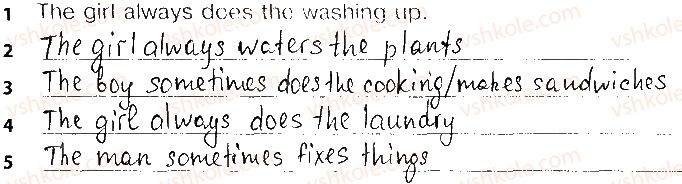 1 The girl always does the washing up.
2 The girl always waters the plants
3 The boy sometimes does the cooking/makes sandwiches
4 The girl always does the laundry
5 The man sometimes fixes things
vshkole.com